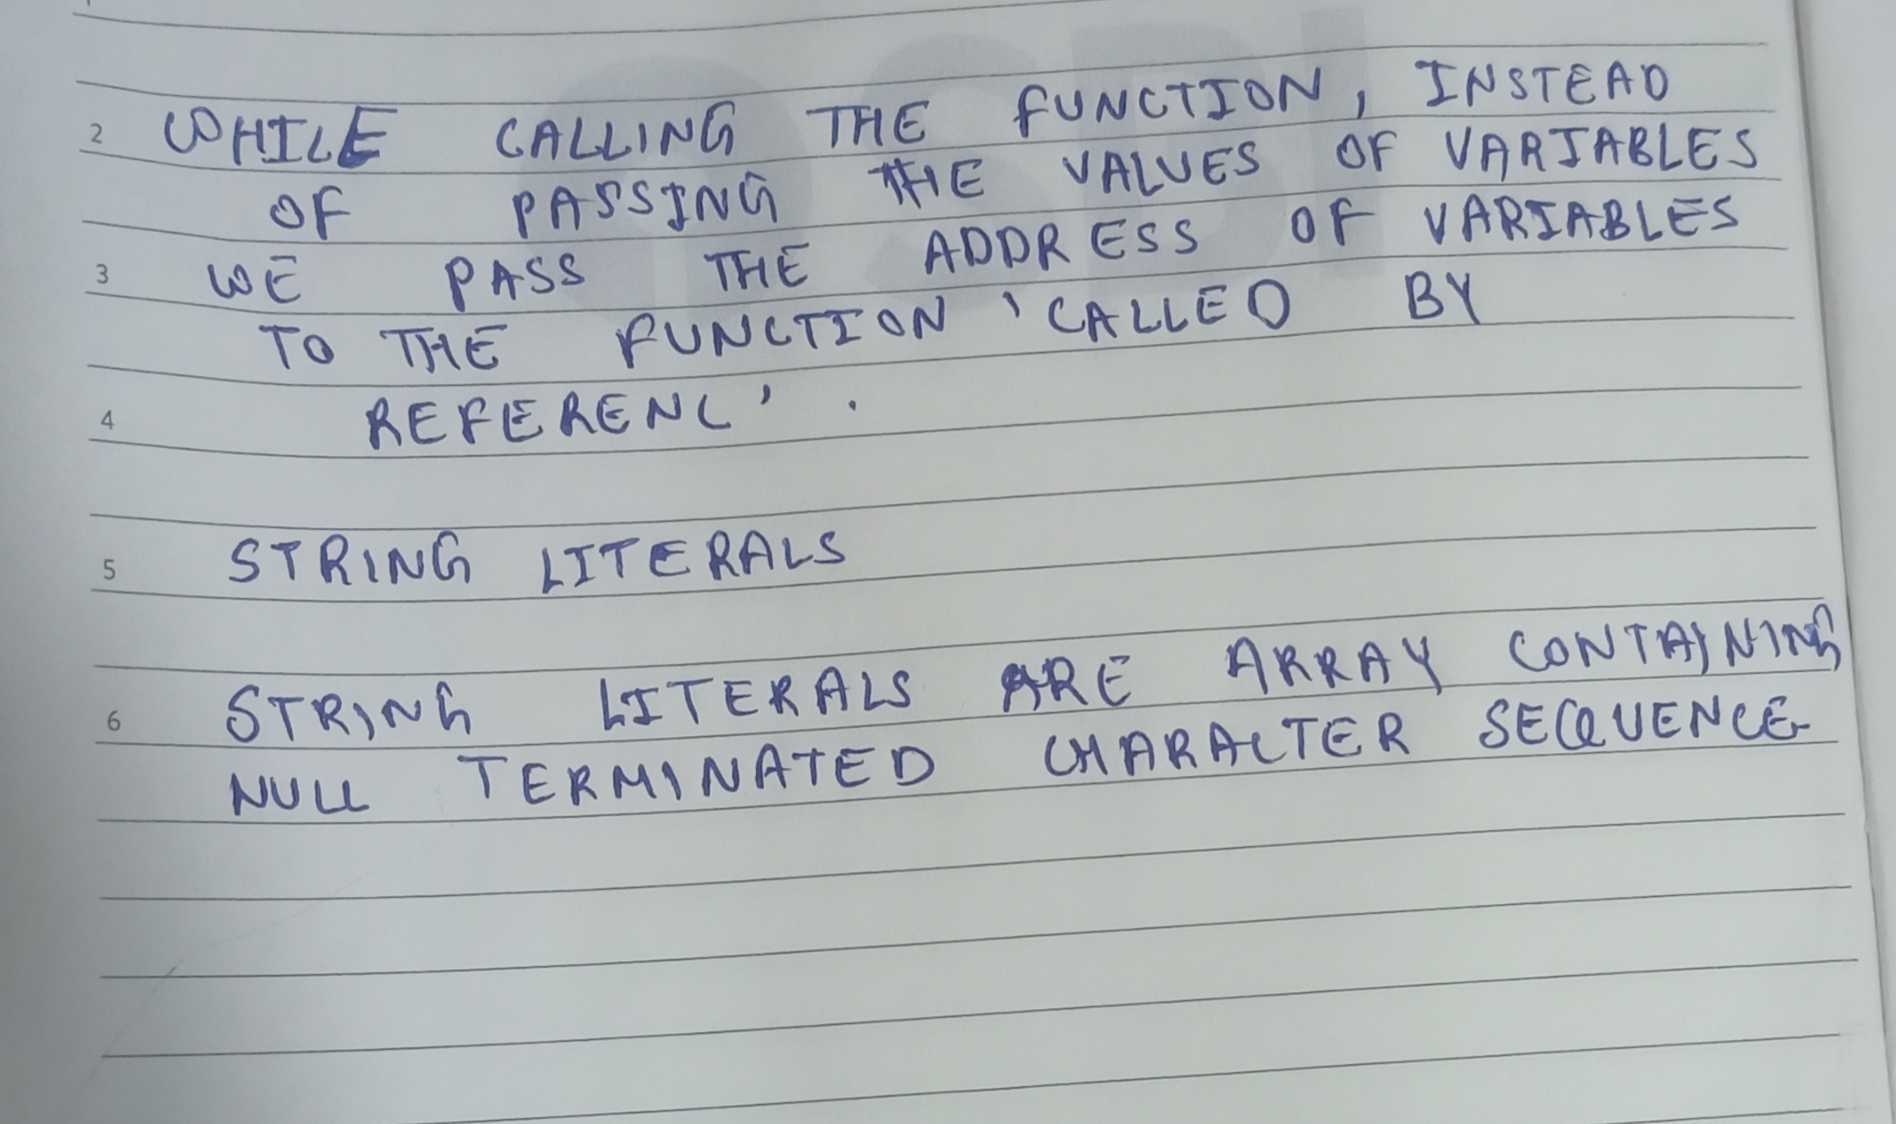 2 WHILE CALLING THE FUNCTION, INSTEAD
OF PASSING THE VALUES OF VARIABLES
3 WE PASS THE ADDRESS OF VARIABLES
TO THE FUNCTION 'CALLED BY
4 REFERENC'.
5 STRING LITERALS
6 STRING LITERALS ARE ARRAY CONTAINING
NULL TERMINATED CHARACTER SEQUENCE